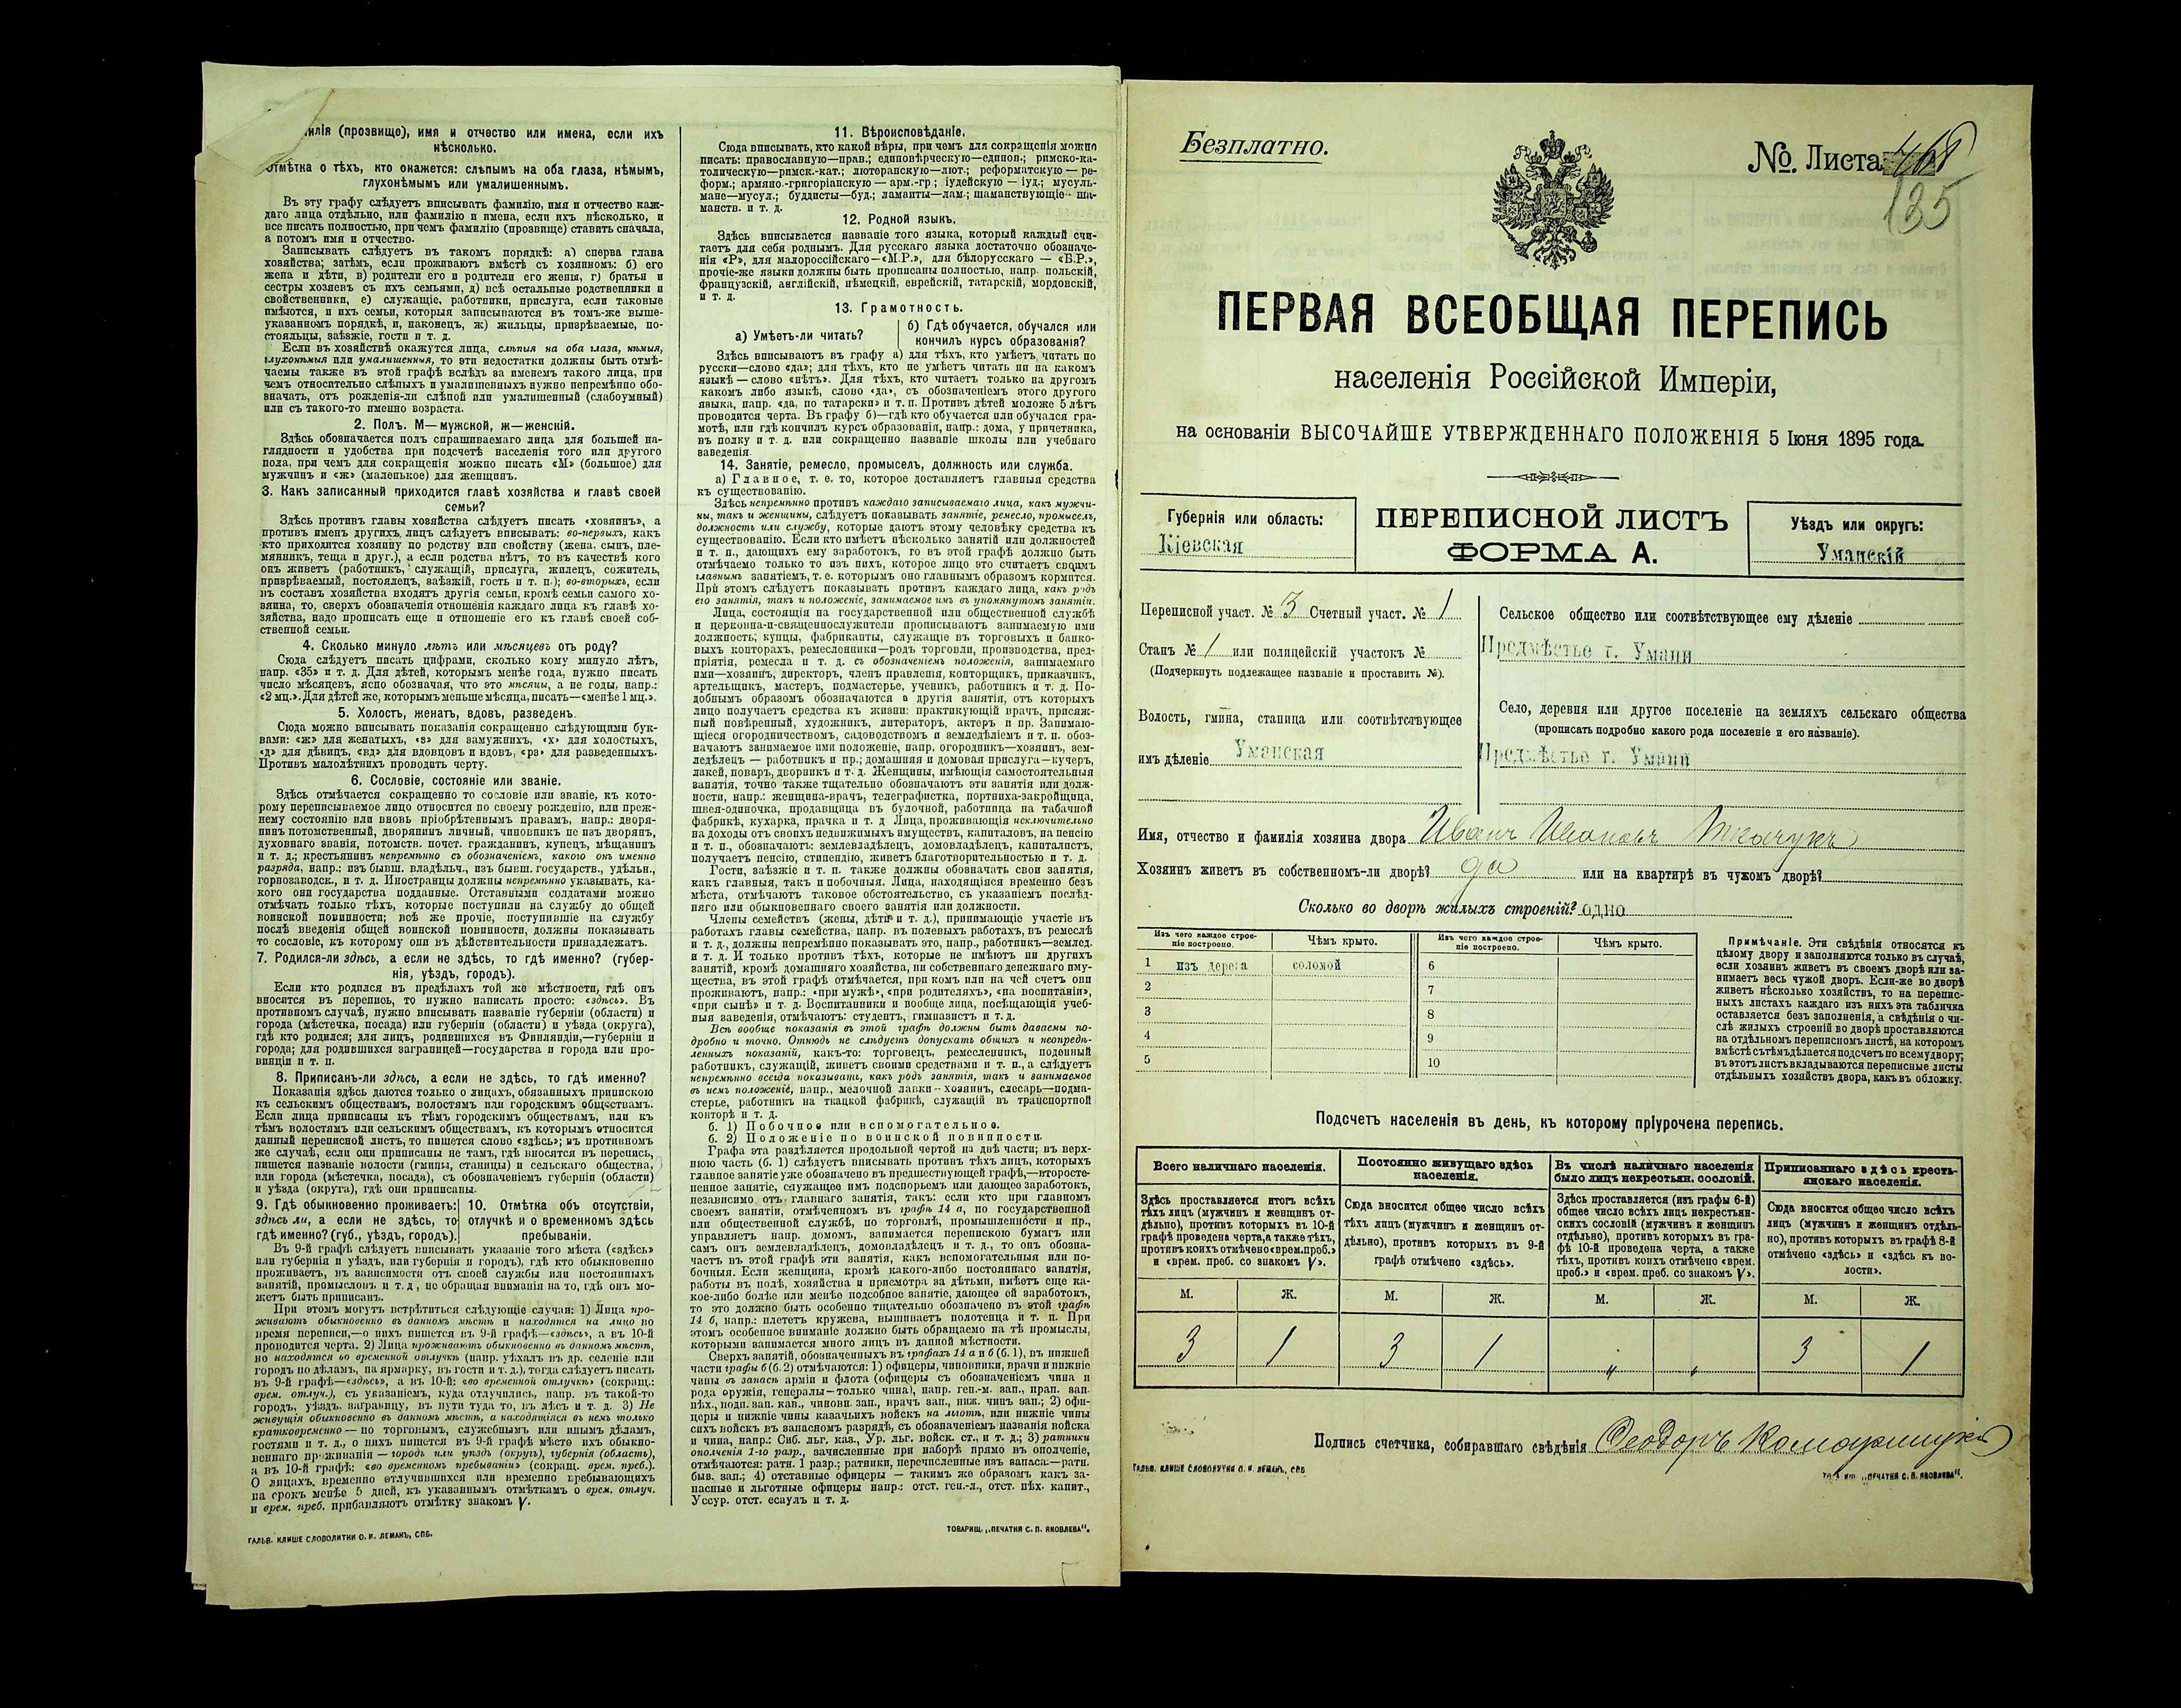 илія (прозвище), имя и отчество или имена, если ихъ
нѣсколько.
Отмѣтка о тѣхъ, кто окажется: слѣпымъ на оба глаза, нѣмымъ,
глухонѣмымъ или умалишеннымъ.
Въ эту графу слѣдуетъ вписывать фамилію, имя и отчество каж-
даго лица отдѣльно, или фамилію и имена, если ихъ нѣсколько, и
все писать полностью, при чемъ фамилію (прозвище) ставить сначала,
а потомъ имя и отчество.
Записывать слѣдуетъ въ такомъ порядкѣ: а) сперва глава
хозяйства; затѣмъ, если проживаютъ вмѣстѣ съ хозяиномъ: б) его
жена и дѣти, в) родители его и родители его жены, г) братья и
сестры хозяевъ съ ихъ семьями, д) всѣ остальные родственники и
свойственники, е) служащіе, работники, прислуга, если таковые
имѣются, и ихъ семьи, которыя записываются въ томъ-же выше-
указанномъ порядкѣ, и, наконецъ, ж) жильцы, призрѣваемые, по-
стояльцы, заѣзжіе, гости и т. д.
Если въ хозяйствѣ окажутся лица, слѣпыя на оба глаза, нѣмыя,
глухонѣмыя или умалишенныя, то эти недостатки должны быть отмѣ-
чаемы также въ этой графѣ вслѣдъ за именемъ такого лица, при
чемъ относительно слѣпыхъ и умалишенныхъ нужно непремѣнно обо-
значать, отъ рожденія-ли слѣпой или умалишенный (слабоумный)
или съ такого-то именно возраста.
2. Полъ. М—мужской, ж—женскій.
Здѣсь обозначается полъ спрашиваемаго лица для большей на-
глядности и удобства при подсчетѣ населенія того или другого
пола, при чемъ для сокращенія можно писать «М» (большое) для
мужчинъ и «ж» (маленькое) для женщинъ.
3. Какъ записанный приходится главѣ хозяйства и главѣ своей
семьи?
Здѣсь противъ главы хозяйства слѣдуетъ писать «хозяинъ», а
противъ именъ другихъ лицъ слѣдуетъ вписывать: во-первыхъ, какъ
кто приходится хозяину по родству или свойству (жена, сынъ, пле-
мянникъ, теща и друг.), а если родства нѣтъ, то въ качествѣ кого
онъ живетъ (работникъ, служащій, прислуга, жилецъ, сожитель,
призрѣваемый, постоялецъ, заѣзжій, гость и т. п.); во-вторыхъ, если
въ составъ хозяйства входятъ другія семьи, кромѣ семьи самого хо-
зяина, то, сверхъ обозначенія отношенія каждаго лица къ главѣ хо-
зяйства, надо прописать еще и отношеніе его къ главѣ своей соб-
ственной семьи.
4. Сколько минуло лѣтъ или мѣсяцевъ отъ роду?
Сюда слѣдуетъ писать цифрами, сколько кому минуло лѣтъ,
напр. «35» и т. д. Для дѣтей, которымъ менѣе года, нужно писать
число мѣсяцевъ, ясно обозначая, что это мѣсяцы, а не годы, напр.:
«2 мц.». Для дѣтей же, которымъ меньше мѣсяца, писать—«менѣе 1 мц.».
5. Холостъ, женатъ, вдовъ, разведенъ.
Сюда можно вписывать показанія сокращенно слѣдующими бук-
вами: «ж» для женатыхъ, «з» для замужнихъ, «х» для холостыхъ,
«д» для дѣвицъ, «вд» для вдовцовъ и вдовъ, «рз» для разведенныхъ.
Противъ малолѣтнихъ проводить черту.
6. Сословіе, состояніе или званіе.
Здѣсь отмѣчается сокращенно то сословіе или званіе, къ кото-
рому переписываемое лицо относится по своему рожденію, или преж-
нему состоянію или вновь пріобрѣтеннымъ правамъ, напр.: дворя-
нинъ потомственный, дворянинъ личный, чиновникъ не изъ дворянъ,
духовнаго званія, потомств. почет. гражданинъ, купецъ, мѣщанинъ
и т. д.; крестьянинъ непремѣнно съ обозначеніемъ, какого онъ именно
разряда, напр.: изъ бывш. владѣльч., изъ бывш. государств., удѣльн.,
горнозаводск., и т. д. Иностранцы должны непремѣнно указывать, ка-
кого они государства подданные. Отставными солдатами можно
отмѣчать только тѣхъ, которые поступили на службу до общей
воинской повинности; всѣ же прочіе, поступившіе на службу
послѣ введенія общей воинской повинности, должны показывать
то сословіе, къ которому они въ дѣйствительности принадлежатъ.
7. Родился-ли здѣсь, а если не здѣсь, то гдѣ именно? (губер-
нія, уѣздъ, городъ).
Если кто родился въ предѣлахъ той же мѣстности, гдѣ онъ
вносится въ перепись, то нужно написать просто: «здѣсь». Въ
противномъ случаѣ, нужно вписывать названіе губерніи (области) и
города (мѣстечка, посада) или губерніи (области) и уѣзда (округа),
гдѣ кто родился; для лицъ, родившихся въ Финляндіи,—губерніи и
города; для родившихся заграницей—государства и города или про-
винціи и т. п.
8. Приписанъ-ли здѣсь, а если не здѣсь, то гдѣ именно?
Показанія здѣсь даются только о лицахъ, обязанныхъ припискою
къ сельскимъ обществамъ, волостямъ или городскимъ обществамъ.
Если лица приписаны къ тѣмъ городскимъ обществамъ, или къ
тѣмъ волостямъ или сельскимъ обществамъ, къ которымъ относится
данный переписной листъ, то пишется слово «здѣсь»; въ противномъ
же случаѣ, если они приписаны не тамъ, гдѣ вносятся въ перепись,
пишется названіе волости (гмины, станицы) и сельскаго общества,
или города (мѣстечка, посада), съ обозначеніемъ губерніи (области)
и уѣзда (округа), гдѣ они приписаны.
9. Гдѣ обыкновенно проживаетъ:
здѣсь ли, а если не здѣсь, то
гдѣ именно? (губ., уѣздъ, городъ).
10. Отмѣтка объ отсутствіи,
отлучкѣ и о временномъ здѣсь
пребываніи.
Въ 9-й графѣ слѣдуетъ вписывать указаніе того мѣста («здѣсь»
или губернія и уѣздъ, или губернія и городъ), гдѣ кто обыкновенно
проживаетъ, въ зависимости отъ своей службы или постоянныхъ
занятій, промысловъ и т. д, не обращая вниманія на то, гдѣ онъ мо-
жетъ быть приписанъ.
При этомъ могутъ встрѣтиться слѣдующіе случаи: 1) Лица про-
живаютъ обыкновенно въ данномъ мѣстѣ и находятся на лицо во
время переписи,—о нихъ пишется въ 9-й графѣ—«здѣсь», а въ 10-й
проводится черта. 2) Лица проживаютъ обыкновенно въ данномъ мѣстѣ,
но находятся во временной отлучкѣ (напр. уѣхалъ въ др. селеніе или
городъ по дѣламъ, на ярмарку, въ гости и т. д.), тогда слѣдуетъ писать
въ 9-й графѣ—«здѣсь», а въ 10-й: «во временной отлучкѣ» (сокращ.:
врем. отлуч.), съ указаніемъ, куда отлучились, напр. въ такой-то
городъ, уѣздъ, заграницу, въ пути туда то, въ лѣсъ и т. д. 3) Не
живущія обыкновенно въ данномъ мѣстѣ, а находящіяся въ немъ только
кратковременно — по торговымъ, служебнымъ или инымъ дѣламъ,
гостями и т. д., о нихъ пишется въ 9-й графѣ мѣсто ихъ обыкно-
веннаго проживанія — городъ или уѣздъ (округъ), губернія (область),
а въ 10-й графѣ: «во временномъ пребываніи» (сокращ. врем. преб.).
О лицахъ, временно отлучившихся или временно пребывающихъ
на срокъ менѣе 5 дней, къ указаннымъ отмѣткамъ о врем. отлуч.
и врем. преб. прибавляютъ отмѣтку знакомъ V.
ГАЛЬВ. КЛИШЕ СЛОВОЛИТНИ О. И. ЛЕМАНЪ, СПБ.
11. Вѣроисповѣданіе.
Сюда вписывать, кто какой вѣры, при чемъ для сокращенія можно
писать: православную—прав.; единовѣрческую—единов.; римско-ка-
толическую—римск.-кат.; лютеранскую—лют.; реформатскую — ре-
форм.; армяно-григоріанскую — арм.-гр.; іудейскую — іуд.; мусуль-
мане—мусул.; буддисты—буд.; ламаиты—лам.; шаманствующіе—ша-
манств. и т. д.
12. Родной языкъ.
Здѣсь вписывается названіе того языка, который каждый счи-
таетъ для себя роднымъ. Для русскаго языка достаточно обозначе-
нія «Р», для малороссійскаго—«М.Р.», для бѣлорусскаго — «Б.Р.»,
прочіе-же языки должны быть прописаны полностью, напр. польскій,
французскій, англійскій, нѣмецкій, еврейскій, татарскій, мордовскій,
и т. д.
13. Грамотность.
а) Умѣетъ-ли читать?
б) Гдѣ обучается, обучался или
кончилъ курсъ образованія?
Здѣсь вписываютъ въ графу а) для тѣхъ, кто умѣетъ читать по
русски—слово «да»; для тѣхъ, кто не умѣетъ читать ни на какомъ
языкѣ — слово «нѣтъ». Для тѣхъ, кто читаетъ только на другомъ
какомъ либо языкѣ, слово «да», съ обозначеніемъ этого другого
языка, напр. «да, по татарски» и т. п. Противъ дѣтей моложе 5 лѣтъ
проводится черта. Въ графу б)—гдѣ кто обучается или обучался гра-
мотѣ, или гдѣ кончилъ курсъ образованія, напр.: дома, у причетника,
въ полку и т. д. или сокращенно названіе школы или учебнаго
заведенія
14. Занятіе, ремесло, промыселъ, должность или служба.
а) Главное, т. е. то, которое доставляетъ главныя средства
къ существованію.
Здѣсь непремѣнно противъ каждаго записываемаго лица, какъ мужчи-
ны, такъ и женщины, слѣдуетъ показывать занятіе, ремесло, промыселъ,
должность или службу, которые даютъ этому человѣку средства къ
существованію. Если кто имѣетъ нѣсколько занятій или должностей
и т. п., дающихъ ему заработокъ, то въ этой графѣ должно быть
отмѣчаемо только то изъ нихъ, которое лицо это считаетъ своимъ
главнымъ занятіемъ, т. е. которымъ оно главнымъ образомъ кормится.
При этомъ слѣдуетъ показывать противъ каждаго лица, какъ родъ
его занятія, такъ и положеніе, занимаемое имъ въ упомянутомъ занятіи.
Лица, состоящія на государственной или общественной службѣ
и церковно-и-священнослужители прописываютъ занимаемую ими
должность; купцы, фабриканты, служащіе въ торговыхъ и банко-
выхъ конторахъ, ремесленники—родъ торговли, производства, пред-
пріятія, ремесла и т. д. съ обозначеніемъ положенія, занимаемаго
ими—хозяинъ, директоръ, членъ правленія, конторщикъ, приказчикъ,
артельщикъ, мастеръ, подмастерье, ученикъ, работникъ и т. д. По-
добнымъ образомъ обозначаются и другія занятія, отъ которыхъ
лицо получаетъ средства къ жизни: практикующій врачъ, присяж-
ный повѣренный, художникъ, литераторъ, актеръ и пр. Занимаю-
щіеся огородничествомъ, садоводствомъ и земледѣліемъ и т. п. обоз-
начаютъ занимаемое ими положеніе, напр. огородникъ—хозяинъ, зем-
ледѣлецъ — работникъ и пр.; домашняя и домовая прислуга—кучеръ,
лакей, поваръ, дворникъ и т. д. Женщины, имѣющія самостоятельныя
занятія, точно также тщательно обозначаютъ эти занятія или долж-
ности, напр.: женщина-врачъ, телеграфистка, портниха-закройщица,
швея-одиночка, продавщица въ булочной, работница на табачной
фабрикѣ, кухарка, прачка и т. д Лица, проживающія исключительно
на доходы отъ своихъ недвижимыхъ имуществъ, капиталовъ, на пенсію
и т. п., обозначаютъ: землевладѣлецъ, домовладѣлецъ, капиталистъ,
получаетъ пенсію, стипендію, живетъ благотворительностью и т. д.
Гости, заѣзжіе и т. п. также должны обозначать свои занятія,
какъ главныя, такъ и побочныя. Лица, находящіяся временно безъ
мѣста, отмѣчаютъ таковое обстоятельство, съ указаніемъ послѣд-
няго или обыкновеннаго своего занятія или должности.
Члены семействъ (жены, дѣти и т. д.), принимающіе участіе въ
работахъ главы семейства, напр. въ полевыхъ работахъ, въ ремеслѣ
и т. д., должны непремѣнно показывать это, напр., работникъ—землед.
и т. д. И только противъ тѣхъ, которые не имѣютъ ни другихъ
занятій, кромѣ домашняго хозяйства, ни собственнаго денежнаго иму-
щества, въ этой графѣ отмѣчается, при комъ или на чей счетъ они
проживаютъ, напр.: «при мужѣ», «при родителяхъ», «на воспитаніи»,
«при сынѣ» и т. д. Воспитанники и вообще лица, посѣщающія учеб-
ныя заведенія, отмѣчаютъ: студентъ, гимназистъ и т. д.
Всѣ вообще показанія въ этой графѣ должны быть даваемы по-
дробно и точно. Отнюдь не слѣдуетъ допускать общихъ и неопредѣ-
ленныхъ показаній, какъ-то: торговецъ, ремесленникъ, поденный
работникъ, служащій, живетъ своими средствами и т. п., а слѣдуетъ
непремѣнно всегда показывать, какъ родъ занятія, такъ и занимаемое
въ немъ положеніе, напр., мелочной лавки—хозяинъ, слесарь—подма-
стерье, работникъ на ткацкой фабрикѣ, служащій въ транспортной
конторѣ и т. д.
б. 1) Побочное или вспомогательное.
б. 2) Положеніе по воинской повинности.
Графа эта раздѣляется продольной чертой на двѣ части; въ верх-
нюю часть (б. 1) слѣдуетъ вписывать противъ тѣхъ лицъ, которыхъ
главное занятіе уже обозначено въ предшествующей графѣ,—второсте-
пенное занятіе, служащее имъ подспорьемъ или дающее заработокъ,
независимо отъ главнаго занятія, такъ: если кто при главномъ
своемъ занятіи, отмѣченномъ въ графѣ 14 а, по государственной
или общественной службѣ, по торговлѣ, промышленности и пр.,
управляетъ напр. домомъ, занимается перепискою бумагъ или
самъ онъ землевладѣлецъ, домовладѣлецъ и т. д., то онъ обозна-
чаетъ въ этой графѣ эти занятія, какъ вспомогательныя или по-
бочныя. Если женщина, кромѣ какого-либо постояннаго занятія,
работы въ полѣ, хозяйства и присмотра за дѣтьми, имѣетъ еще ка-
кое-либо болѣе или менѣе подсобное занятіе, дающее ей заработокъ,
то это должно быть особенно тщательно обозначено въ этой графѣ
14 б, напр.: плететъ кружева, вышиваетъ полотенца и т. п. При
этомъ особенное вниманіе должно быть обращаемо на тѣ промыслы,
которыми занимается много лицъ въ данной мѣстности.
Сверхъ занятій, обозначенныхъ въ графахъ 14 а и б (б. 1), въ нижней
части графы б (б. 2) отмѣчаются: 1) офицеры, чиновники, врачи и нижніе
чины въ запасѣ арміи и флота (офицеры съ обозначеніемъ чина и
рода оружія, генералы—только чина), напр. ген.-м. зап., прап. зап.
пѣх., подп. зап. кав., чиновн. зап., врачъ зап., ниж. чинъ зап.; 2) офи-
церы и нижніе чины казачьихъ войскъ на льготѣ, или нижніе чины
сихъ войскъ въ запасномъ разрядѣ, съ обозначеніемъ названія войска
и чина, напр.: Сиб. льг. каз., Ур. льг. войск. ст., и т. д.; 3) ратники
ополченія 1-го разр., зачисленные при наборѣ прямо въ ополченіе,
отмѣчаются: ратн. 1 разр.; ратники, перечисленные изъ запаса—ратн.
быв. зап.; 4) отставные офицеры — такимъ же образомъ какъ за-
пасные и льготные офицеры напр.: отст. ген.-л., отст. пѣх. капит.,
Уссур. отст. есаулъ и т. д.
ТОВАРИЩ. „ПЕЧАТНЯ С. П. ЯКОВЛЕВА".
Безплатно.
№. Листа 468
135
ПЕРВАЯ ВСЕОБЩАЯ ПЕРЕПИСЬ
населенія Россійской Имперіи,
на основаніи ВЫСОЧАЙШЕ УТВЕРЖДЕННАГО ПОЛОЖЕНІЯ 5 Іюня 1895 года.
Губернія или область:
Кіевская
ПЕРЕПИСНОЙ ЛИСТЪ
ФОРМА А.
Уѣздъ или округъ:
Уманскій
Переписной участ. № 3 Счетный участ. № 1
Станъ № 1 или полицейскій участокъ №
(Подчеркнуть подлежащее названіе и проставить №).
Волость, гмина, станица или соотвѣтствующее
имъ дѣленіе Уманская
Сельское общество или соотвѣтствующее ему дѣленіе
Предмѣстье г. Умани
Село, деревня или другое поселеніе на земляхъ сельскаго общества
(прописать подробно какого рода поселеніе и его названіе).
Предмѣстье г. Умани
Имя, отчество и фамилія хозяина двора Иванъ Ивановъ Ткачукъ
Хозяинъ живетъ въ собственномъ-ли дворѣ? да или на квартирѣ въ чужомъ дворѣ?
Сколько во дворѣ жилыхъ строеній? одно
Изъ чего каждое строе-
ніе построено.
Чѣмъ крыто.
Изъ чего каждое строе-
ніе построено.
Чѣмъ крыто.
1 изъ дерева соломой 6
2 7
3 8
4 9
5 10
Примѣчаніе. Эти свѣдѣнія относятся къ
цѣлому двору и заполняются только въ случаѣ,
если хозяинъ живетъ въ своемъ дворѣ или за-
нимаетъ весь чужой дворъ. Если-же во дворѣ
живетъ нѣсколько хозяйствъ, то на перепис-
ныхъ листахъ каждаго изъ нихъ эта табличка
оставляется безъ заполненія, а свѣдѣнія о чи-
слѣ жилыхъ строеній во дворѣ проставляются
на отдѣльномъ переписномъ листѣ, на которомъ
вмѣстѣ съ тѣмъ дѣлается подсчетъ по всему двору;
въ этотъ листъ вкладываются переписные листы
отдѣльныхъ хозяйствъ двора, какъ въ обложку.
Подсчетъ населенія въ день, къ которому пріурочена перепись.
Всего наличнаго населенія.
Здѣсь проставляется итогъ всѣхъ
тѣхъ лицъ (мужчинъ и женщинъ от-
дѣльно), противъ которыхъ въ 10-й
графѣ проведена черта, а также тѣхъ,
противъ коихъ отмѣчено «врем. проб.»
и «врем. преб. со знакомъ V».
Постоянно живущаго здѣсь
населенія.
Сюда вносится общее число всѣхъ
тѣхъ лицъ (мужчинъ и женщинъ от-
дѣльно), противъ которыхъ въ 9-й
графѣ отмѣчено «здѣсь».
Въ числѣ наличнаго населенія
было лицъ некрестьян. сословій.
Здѣсь проставляется (изъ графы 6-й)
общее число всѣхъ лицъ некрестьян-
скихъ сословій (мужчинъ и женщинъ
отдѣльно), противъ которыхъ въ гра-
фѣ 10-й проведена черта, а также
тѣхъ, противъ коихъ отмѣчено «врем.
преб.» и «врем. преб. со знакомъ V».
Приписаннаго здѣсь кресть-
янскаго населенія.
Сюда вносится общее число всѣхъ
лицъ (мужчинъ и женщинъ отдѣль-
но), противъ которыхъ въ графѣ 8-й
отмѣчено «здѣсь» и «здѣсь къ во-
лости».
М. Ж. М. Ж. М. Ж. М. Ж.
3 1 3 1 „ „ 3 1
Подпись счетчика, собиравшаго свѣдѣнія Ѳеодоръ
ГАЛЬВ. КЛИШЕ СЛОВОЛИТНИ О. И. ЛЕМАНЪ, СПБ
„ПЕЧАТНЯ С. П. ЯКОВЛЕВА".